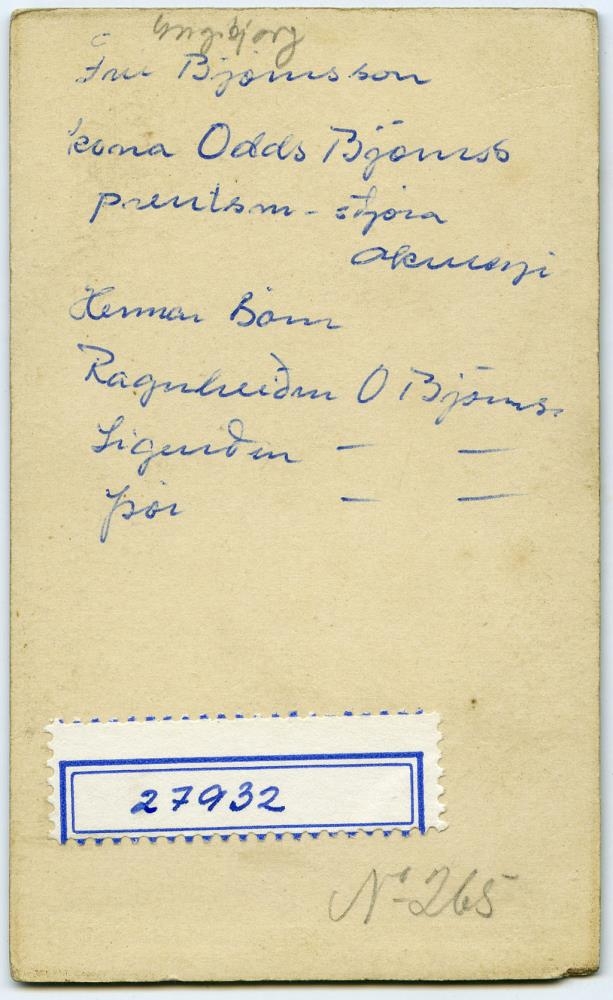 Ingibjörg
Frú Björnsson
kona Odds Björnss
prentsm-stjóra
Akureyri
Hennar Börn
Ragnheiður O Björnss.
Sigurður — —
Þór — —
27932
No 265